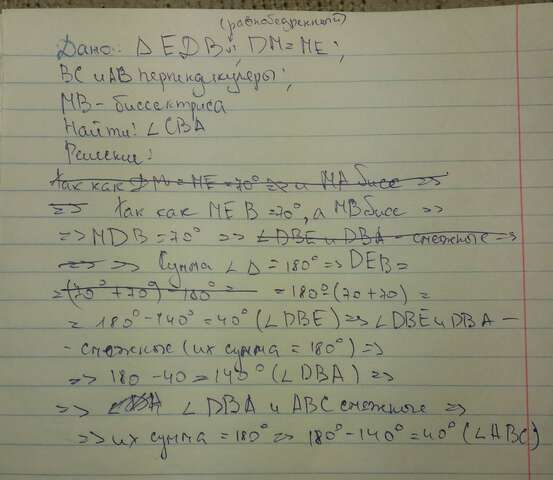 (равнобедренный)
Дано: Δ EDB и DM = ME;
BC и AB перпендикуляры;
MB - биссектриса
Найти: ∠CBA
Решение:
Так как DM = ME = 70° => и MA бисс =>
=> Так как MEB = 70°, а MB бисс =>
=> MDB = 70° => ∠DBE и DBA - смежные =>
=> => Сумма ∠Δ = 180° => DEB =
= (70° + 70°) - 180° = = 180° (70 + 70) =
= 180° - 140° = 40° (∠DBE) => ∠DBE и DBA -
- смежные (их сумма = 180°) =>
=> 180 - 40 = 140° (∠DBA) =>
=> ∠DBA и ABC смежные =>
=> их сумма = 180° => 180° - 140° = 40° (∠ABC)